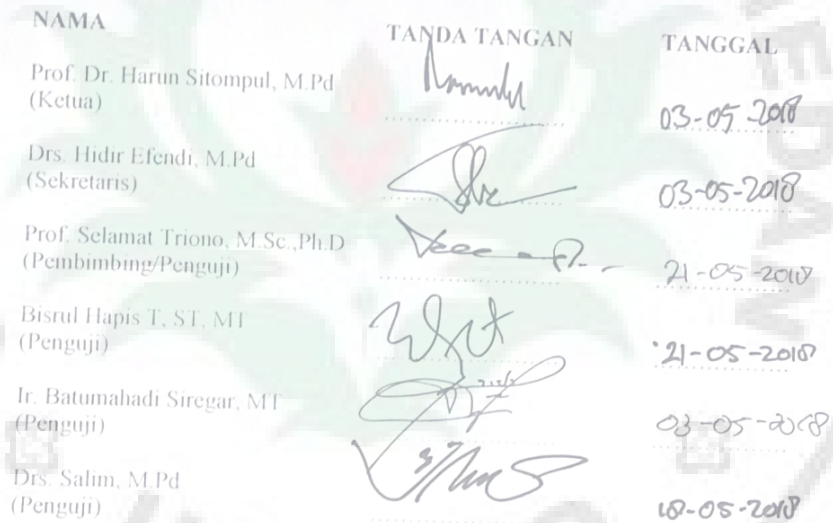 NAMA TANDA TANGAN TANGGAL
Prof. Dr. Harun Sitompul, M.Pd
(Ketua) 03-05-2018
Drs. Hidir Efendi, M.Pd
(Sekretaris) 03-05-2018
Prof. Selamat Triono, M.Sc.,Ph.D
(Pembimbing/Penguji) 21-05-2018
Bisrul Hapis T, ST, MT
(Penguji) 21-05-2018
Ir. Batumahadi Siregar, MT
(Penguji) 03-05-2018
Drs. Salim, M.Pd
(Penguji) 18-05-2018